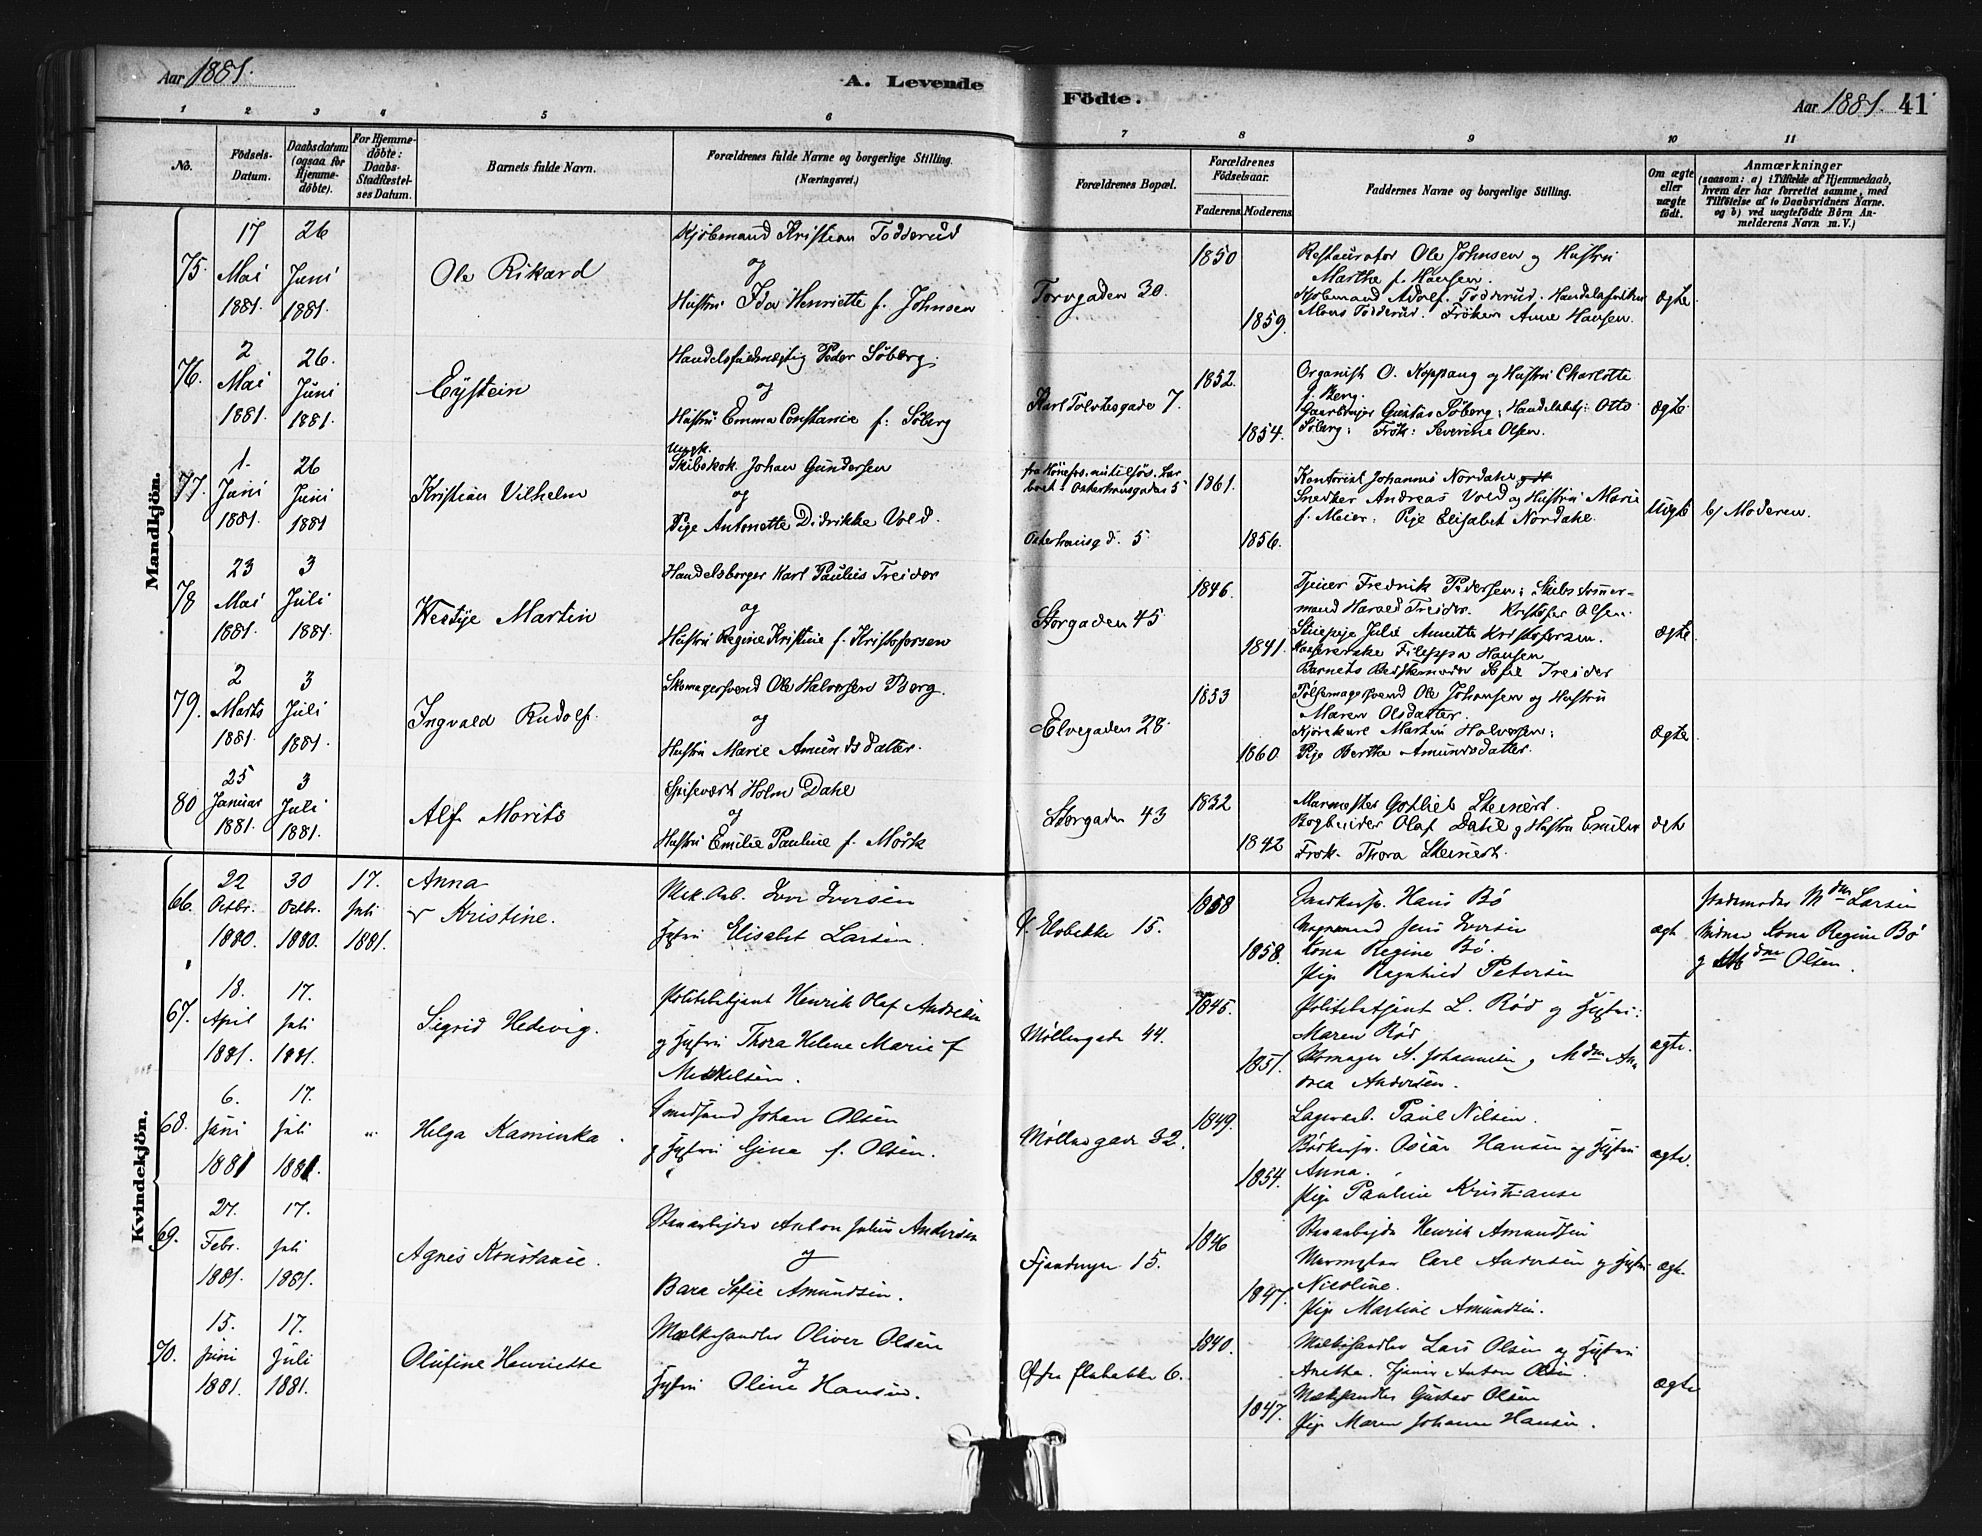 Aar 1881.
A. Levende
Födte.
Aar 1881. 41
1 2 3 4 5 6 7 8 9 10 11
No.
Födsels-Datum.
Daabsdatum (ogsaa for Hjemme-döbte).
For Hjemme-döbte: Daabs-Stadfæstel-ses Datum.
Barnets fulde Navn.
Forældrenes fulde Navne og borgerlige Stilling.
(Næringsvei.)
Forældrenes Bopæl.
Forældrenes Födselsaar.
Faderens. Moderens.
Faddernes Navne og borgerlige Stilling.
Om ægte eller uægte født.
Anmærkninger
(saasom: a) i Tilfælde af Hjemmedaab,
hvem der har forrettet samme, med
Tilföielse af to Daabsvidners Navne.
og b) ved uægtefödte Börn An-
melderens Navn m. V.)
Mandkjön.
75. 17 Mai 1881. 26 Juni 1881.
Ole Rikard
Kjöbmand Kristian Todderud
og
Hustru Ida Henriette f. Johnsen
Torvgaden 30.
1850
1859.
Restauratør Ole Johnsen og Hustru
Marthe f. Hansen.
Kjöbmand Adolf Todderud. 
Mons Todderud. Fröken Anne Hansen.
ægte
76. 2 Mai 1881. 26. Juni 1881.
Eÿstein
Peder Söberg.
og
Hustru Emma Constance f. Söberg
7.
1852.
1854.
Organist O. Koppang og Hustru Charlotte
f. Berg.
Gustav Söberg; Otto
Söberg; Frök: Severine Olsen.
ægte
77. 1. Juni 1881. 26 Juni 1881
Kristian Vilhelm
Ungk.
Skibskok Johan Gundersen
og
Pige Antonette Didrikke Vold.
5
5
1861.
1856.
Kontorist Johannes Nordahl
Snedker Andreas Vold og Hustru Marie
f. Meier; Pige Elisabet Nordahl.
Uægte
b/ Moderen.
78 23 Mai 1881. 3 Juli 1881.
Westye Martin
Handelsborger Karl Paulus Treider
og
Hustru Regine Kristine f. Kristofersen
Storgaden 45
1846.
1841.
Tjener Fredrik Pedersen; Skibstömer-
mand Harald Treider. Kristofer Olsen.
Stuepige Julie Annette Kristofersen.
Filippa Hansen
Barnets Bedstemoder Sofie Treider
ægte
79. 2 Marts 1881. 3 Juli 1881.
Ingvald Rudolf.
Skomagersvend Ole Halvorsen Berg.
og
Hustru Marie Amundsdatter.
Elvegaden 28.
1853
1860
Pölsemagersvend Ole Johansen og Hustru
Maren Olsdatter.
Kjörekarl Martin Halvorsen;
Pige Berthe Amundsdatter.
ægte
80 25 Januar 1881. 3 Juli 1881.
Alf Morits
Spisevært Holm Dahl
og
Hustru Emilie Pauline f. Mörk
Storgaden 43
1832
1842
Murmester Gotlieb Steinert.
Bogbinder Olaf Dahl og Hustru Emilie
Frök. Thora Steinert.
ægte
Kvindekjön.
66. 22 Octbr. 1880. 30 Octbr. 1880. 17. Juli 1881.
Anna
Kristine.
Mek. Arb. Iver Iversen
Hustru Elisabet Larsen.
15.
1858
1858.
Hans Bö
Jens Iversen
Kona Regine Bö.
Pige Ragnhild Petersen
ægt
Jordemoder Mdm Larsen
Vidner Kona Regine Bö
og Mdm Olsen.
67. 18. April 1881. 17. Juli 1881.
Sigrid Hedevig.
Politibetjent Henrik Olaf Andresen
og Hustru Thora Helene Marie f
Mikkelsen.
Möllergade 44.
1845.
1851.
Politibetjent L. Röd og Hustru:
Maren Röd
Skomager A. Johannesen og Mdm An-
drea Andersen.
ægte.
68. 6. Juni 1881 17. Juli 1881.
„
Helga Kaminka.
Smedsvend Johan Olsen
og Hustru Gina f. Olsen.
Möllergade 32.
1849.
1854.
Lagerarb. Paul Nilsen.
Bödkersv. Oscar Hansen og Hustru
Anna.
Pige Pauline Kristianse
ægte.
69. 27. Febr. 1881. 17. Juli 1881.
Agnes Konstance.
Stenarbejder Anton Julius Andersen
og
Bara Sofie Amundsen.
Fjeldveien 15.
1846
1847.
Stenarbejder Henrik Amundsen
Murmester Carl Andersen og Hustru
Nicoline.
Pige Martine Amundsen.
ægt.
70. 15. Juni 1881. 17. Juli 1881.
Olufine Henriette
Mælkehandler Oliver Olsen
og
Hustru Oline Hansen.
6.
1840.
1847.
Mælkehandler Lars Olsen og Hustru
Anetha. Tjener Anton Olsen.
Mælkehandler Gustav Olsen
Pige Maren Johanne Hansen.
ægte